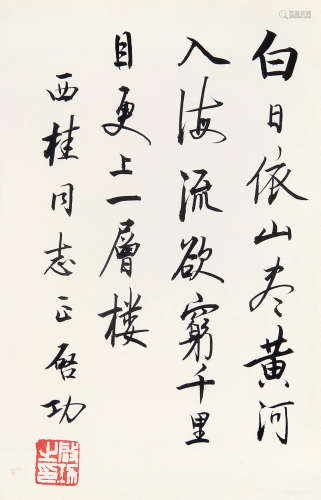 白日依山尽黄河
入海流欲窮千里
目更上一層楼
西桂同志正启功